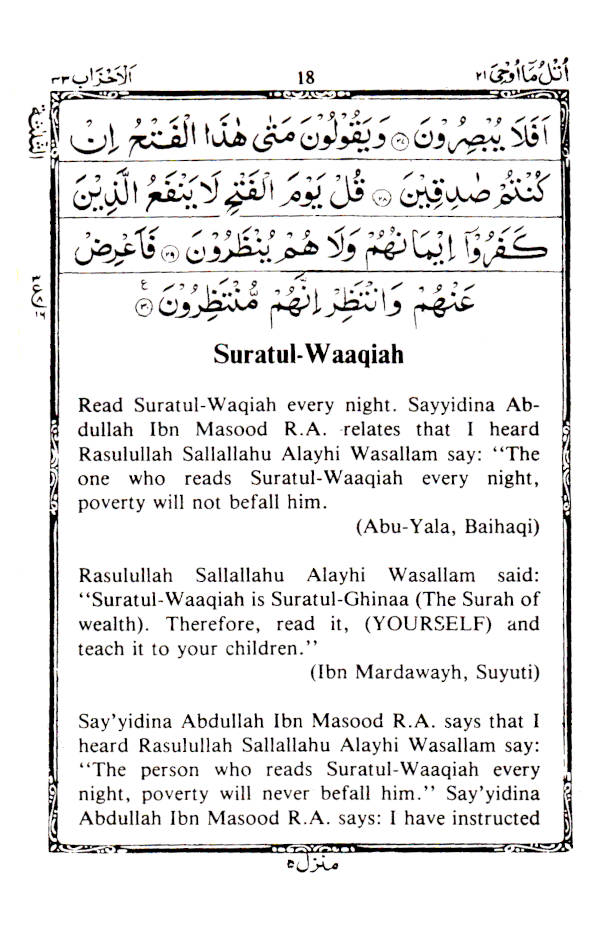 اَلْاَحْزَاب ٣٣
18
اُتْلُ مَآ اُوْحِىَ ٢١
اَفَلَا يُبْصِرُوْنَ ﴿٢٧﴾ وَيَقُوْلُوْنَ مَتٰى هٰذَا الْفَتْحُ اِنْ
كُنْتُمْ صٰدِقِيْنَ ﴿٢٨﴾ قُلْ يَوْمَ الْفَتْحِ لَا يَنْفَعُ الَّذِيْنَ
كَفَرُوْٓا اِيْمَانُهُمْ وَلَا هُمْ يُنْظَرُوْنَ ﴿٢٩﴾ فَاَعْرِضْ
عَنْهُمْ وَانْتَظِرْ اِنَّهُمْ مُّنْتَظِرُوْنَ ﴿٣٠﴾
Suratul-Waaqiah
Read Suratul-Waqiah every night. Sayyidina Ab-
dullah Ibn Masood R.A. relates that I heard
Rasulullah Sallallahu Alayhi Wasallam say: ‘‘The
one who reads Suratul-Waaqiah every night,
poverty will not befall him.
(Abu-Yala, Baihaqi)
Rasulullah Sallallahu Alayhi Wasallam said:
‘‘Suratul-Waaqiah is Suratul-Ghinaa (The Surah of
wealth). Therefore, read it, (YOURSELF) and
teach it to your children.’’
(Ibn Mardawayh, Suyuti)
Say’yidina Abdullah Ibn Masood R.A. says that I
heard Rasulullah Sallallahu Alayhi Wasallam say:
‘‘The person who reads Suratul-Waaqiah every
night, poverty will never befall him.’’ Say’yidina
Abdullah Ibn Masood R.A. says: I have instructed
منزل ٥